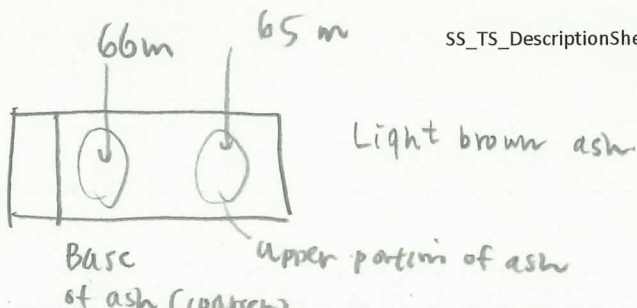 66m
65 m
SS_TS_DescriptionShe
Light brown ash
Base
of ash (coarser)
upper portion of ash